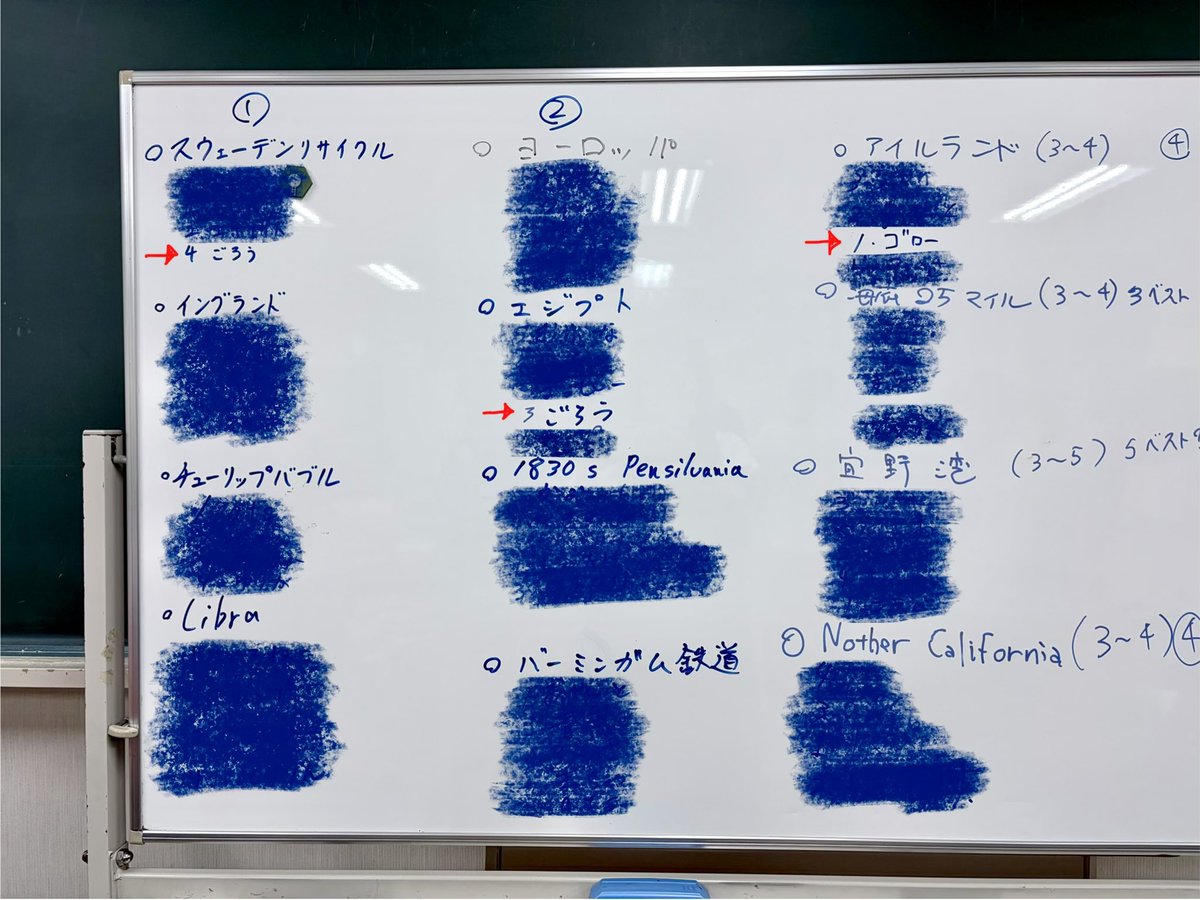 ①
○ スウェーデンリサイクル
→ 4 ごろう
○ イングランド
○ チューリップバブル
○ Libra
②
○ ヨーロッパ
○ エジプト
→ 3 ごろう
○ 1830s Pensilvania
○ バーミンガム鉄道
○ アイルランド (3~4) ④
→ 1. ゴロー
マイル (3~4) 3ベスト
○ 宜野湾 (3~5) 5ベスト
○ Nother California (3~4) ④